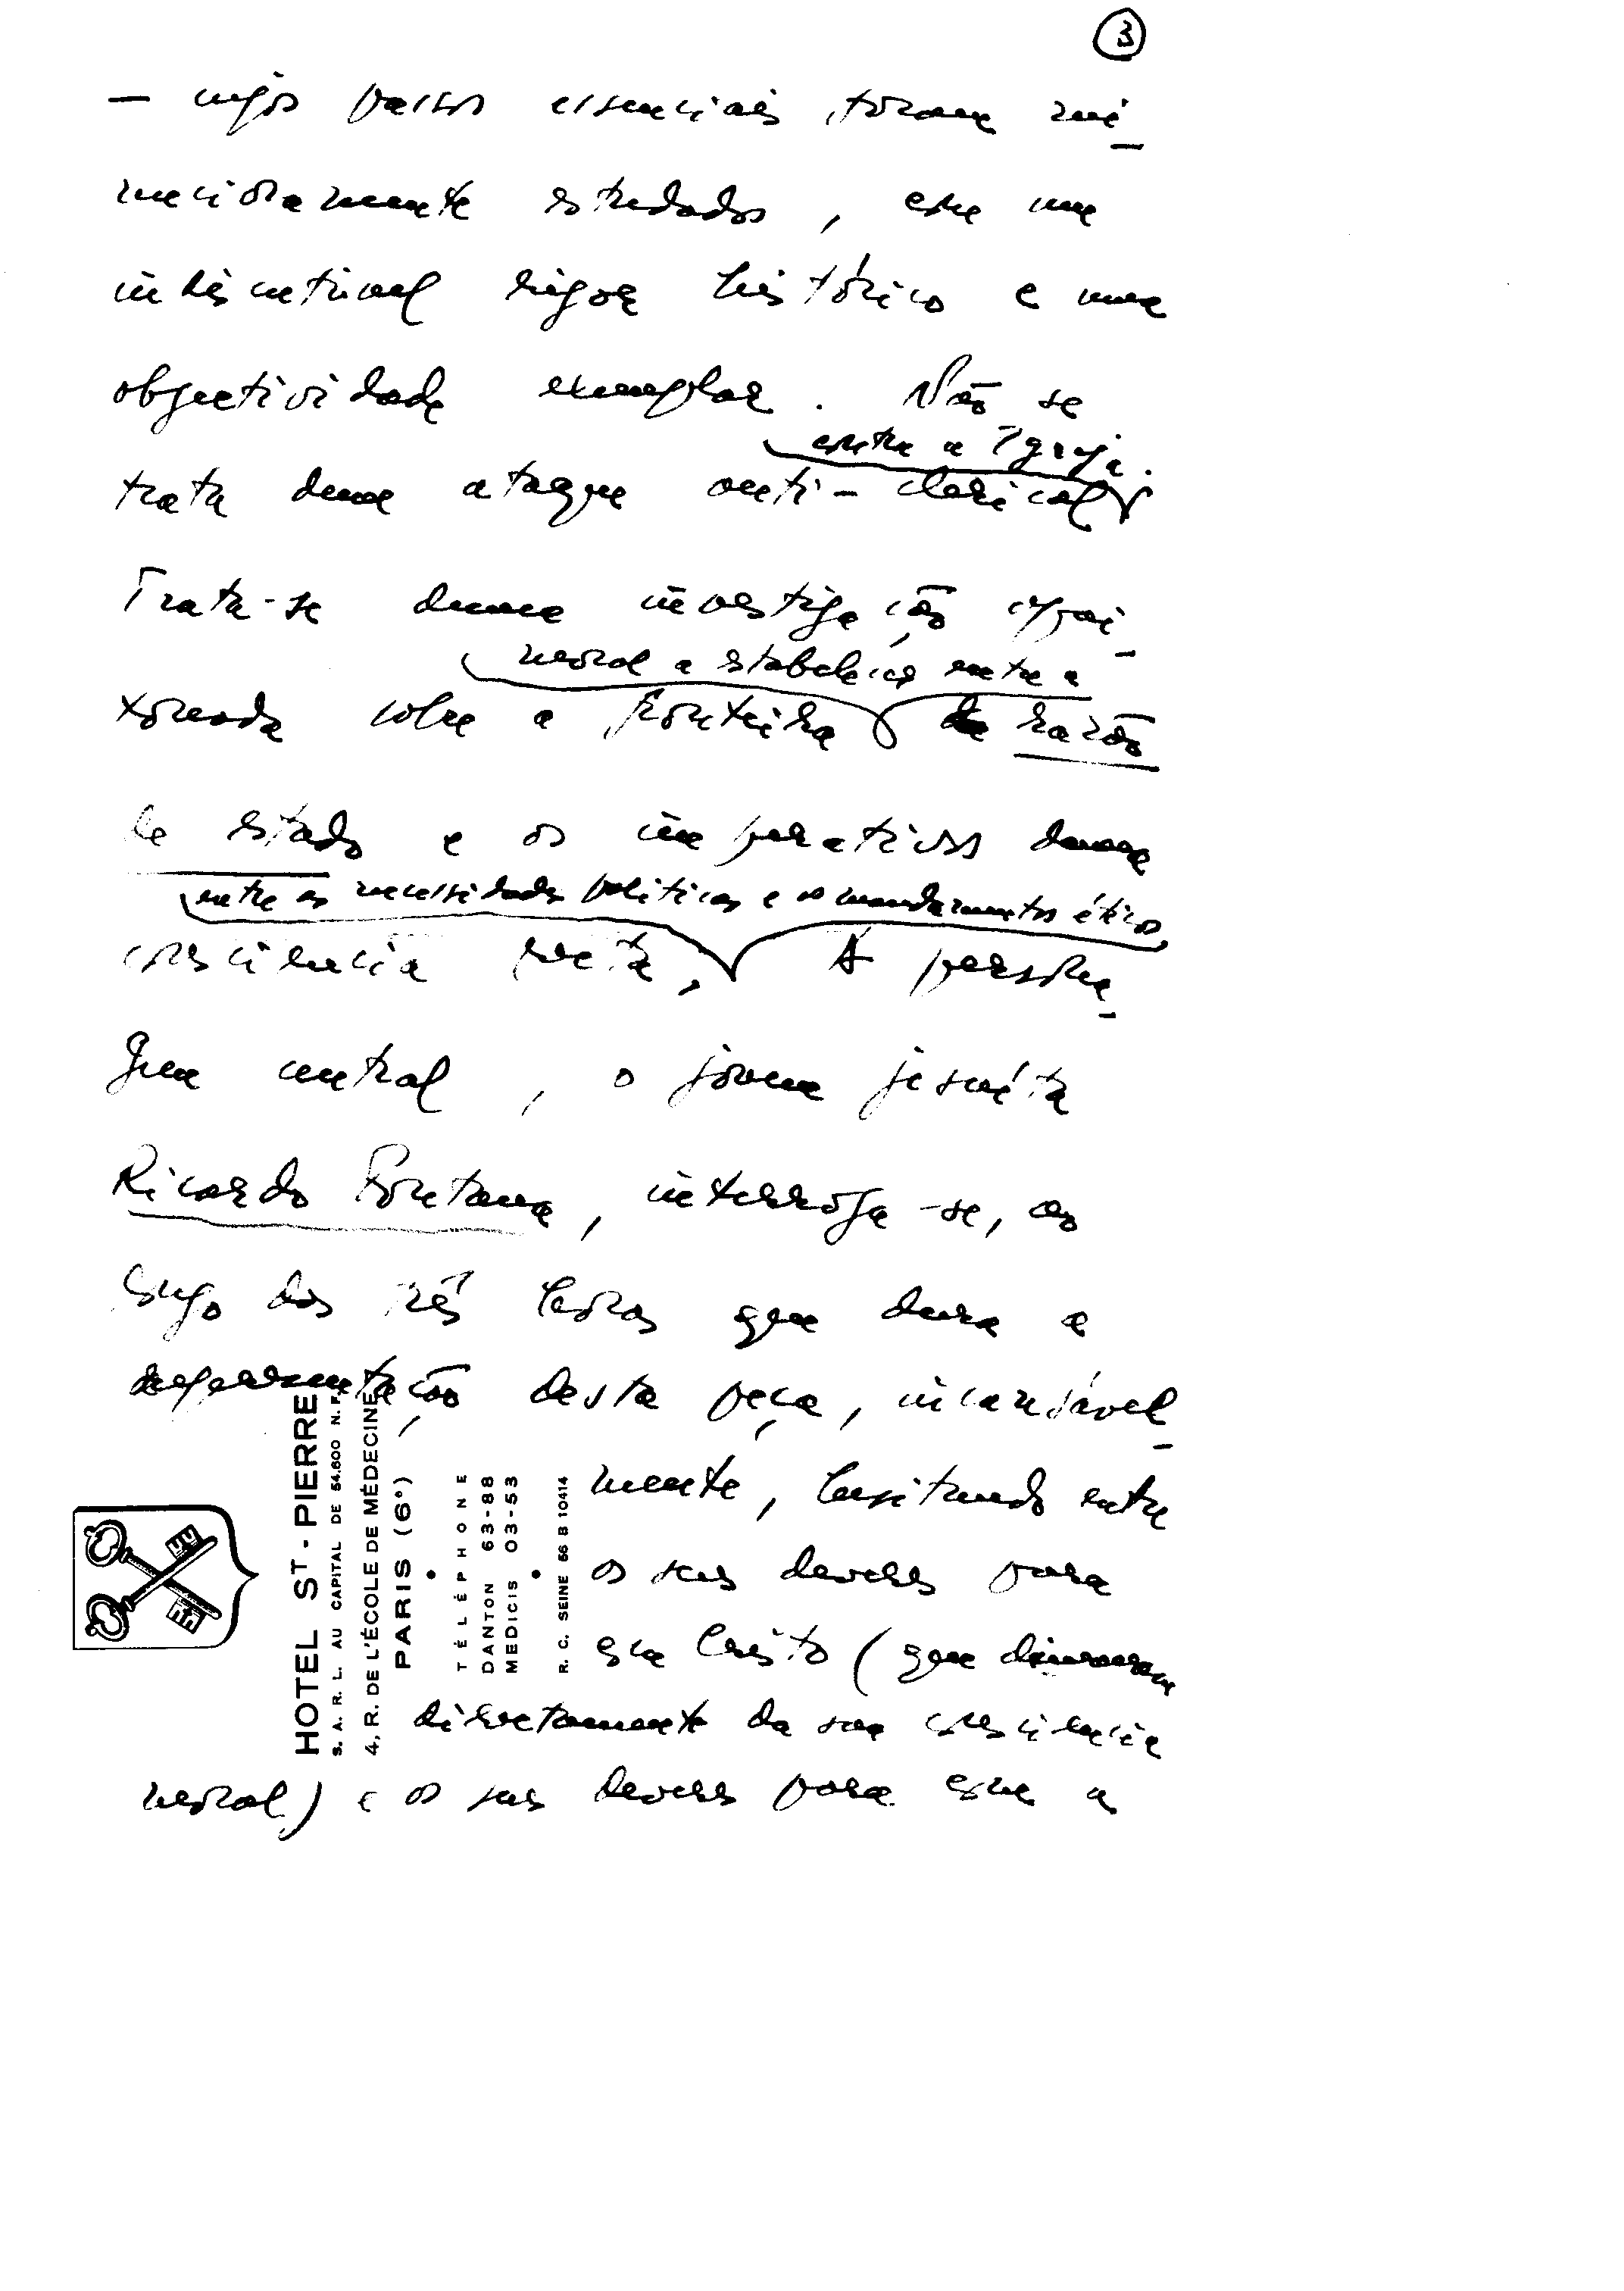 3
— cujos passos essenciais foram mi-
nuciosamente estudados, com um
indiscutível rigor histórico e uma
objectividade exemplar. Não se
contra a Igreja.
trata dum ataque anti-clerical
Trata-se duma investigação apai-
moral a estabelecer entre a
xonada sobre a fronteira razão
de estado e os imperativos duma
entre as necessidades políticas e os mandamentos éticos
consciência recta, A persona-
gem central, o jovem jesuíta
Ricardo Fontana, interroga-se, ao
longo das três horas que dura a
representação desta peça, incansável-
mente, hesitando entre
os seus deveres para
com Cristo (que dimanam
directamente da sua consciência
moral) e os seus deveres para com a
HOTEL ST-PIERRE
S. A. R. L. AU CAPITAL DE 54.600 N. F.
4, R. DE L'ÉCOLE DE MÉDECINE
PARIS (6e)
TÉLÉPHONE
DANTON 63-88
MEDICIS 03-53
R. C. SEINE 56 B 10414